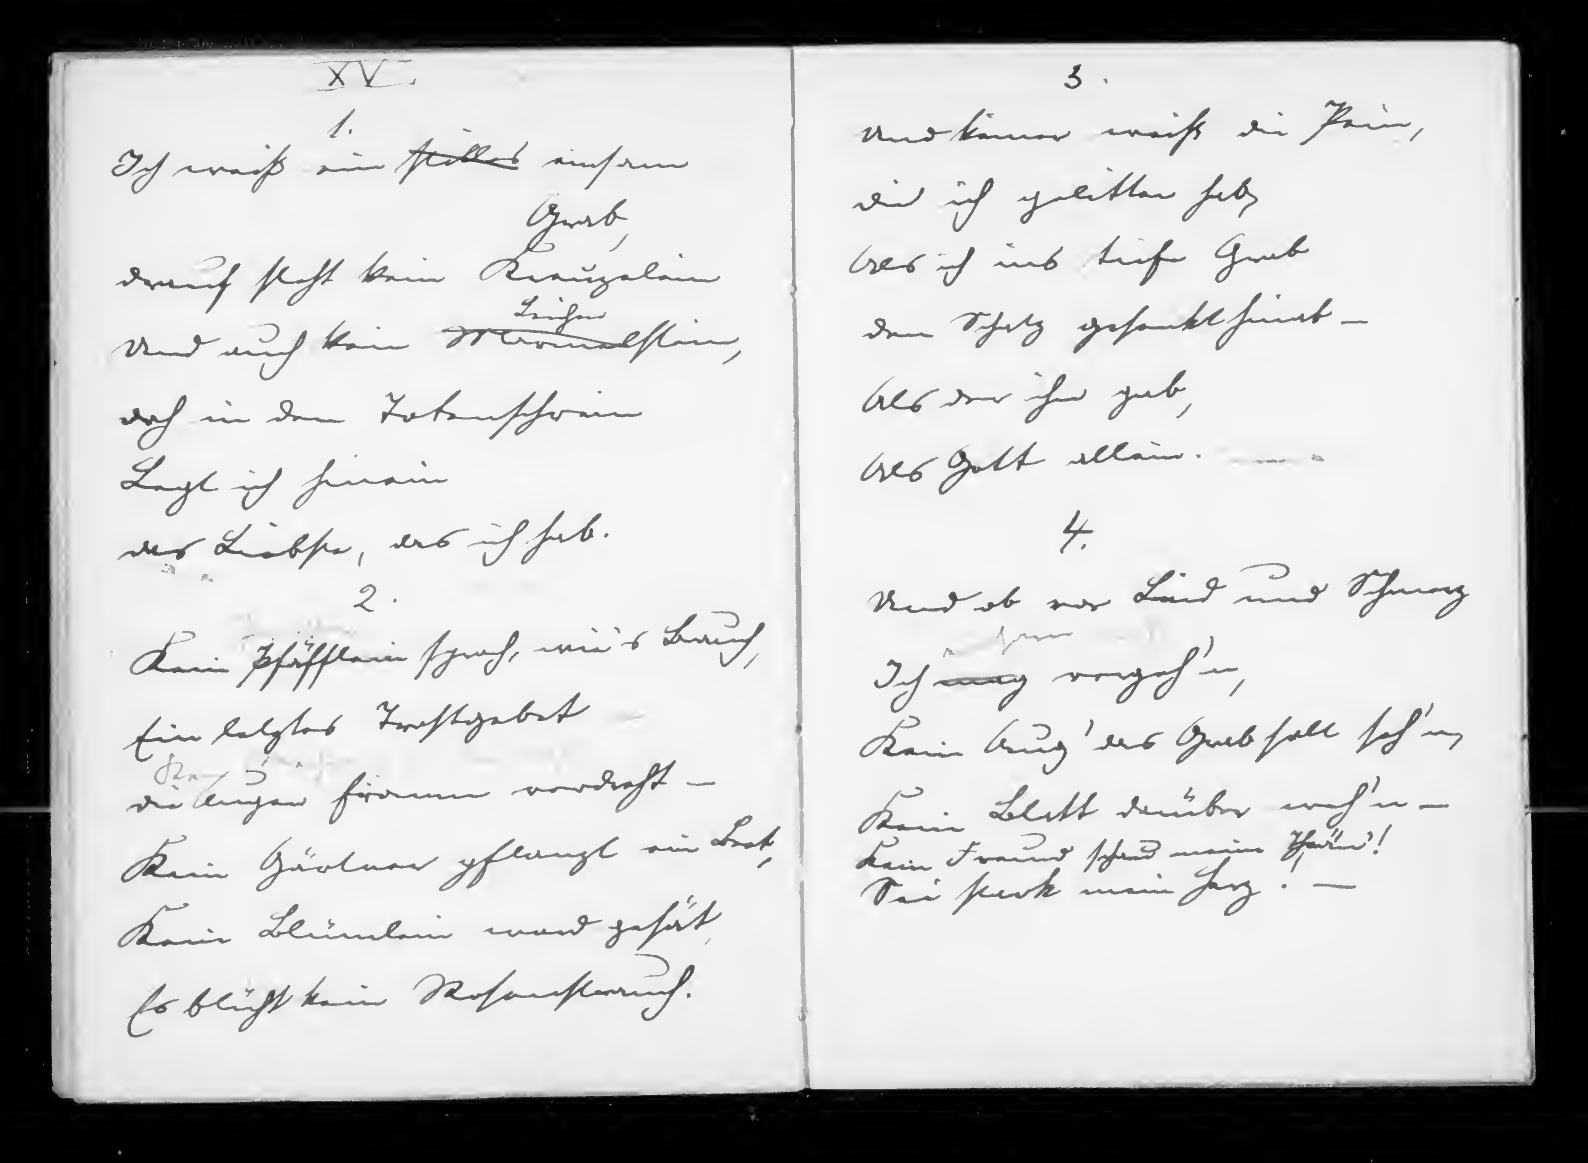 XV.
1.
Ich weiß ein stilles einsam
Grab,
drauf steht kein Kreuzelein
Leichen
Und auch kein Marmelstein,
doch in den Totenschrein
Legt ich hinein
das Liebste, das ich hab.
2.
Kein Pfäfflein sprach, wie's Brauch,
Ein letztes Trostgebet
die Augen fromm verdreht –
Kein Gärtner pflanzt ein Beet,
Kein Blümlein ward gesät,
Es blüht kein Rosenstrauch.
3.
Und keiner weiß die Pein,
die ich gelitten hab,
Als ich ins tiefe Grab
den Schatz gesenkt hinab –
Als der ihn gab,
Als Gott allein.
4.
Und ob vor Leid und Schmerz
Ich mag vergeh'n,
Kein Aug' das Grab soll seh'n,
Kein Blatt darüber weh'n –
Kein Freund schaud meine Thrän'!
Sei stark mein Herz! –